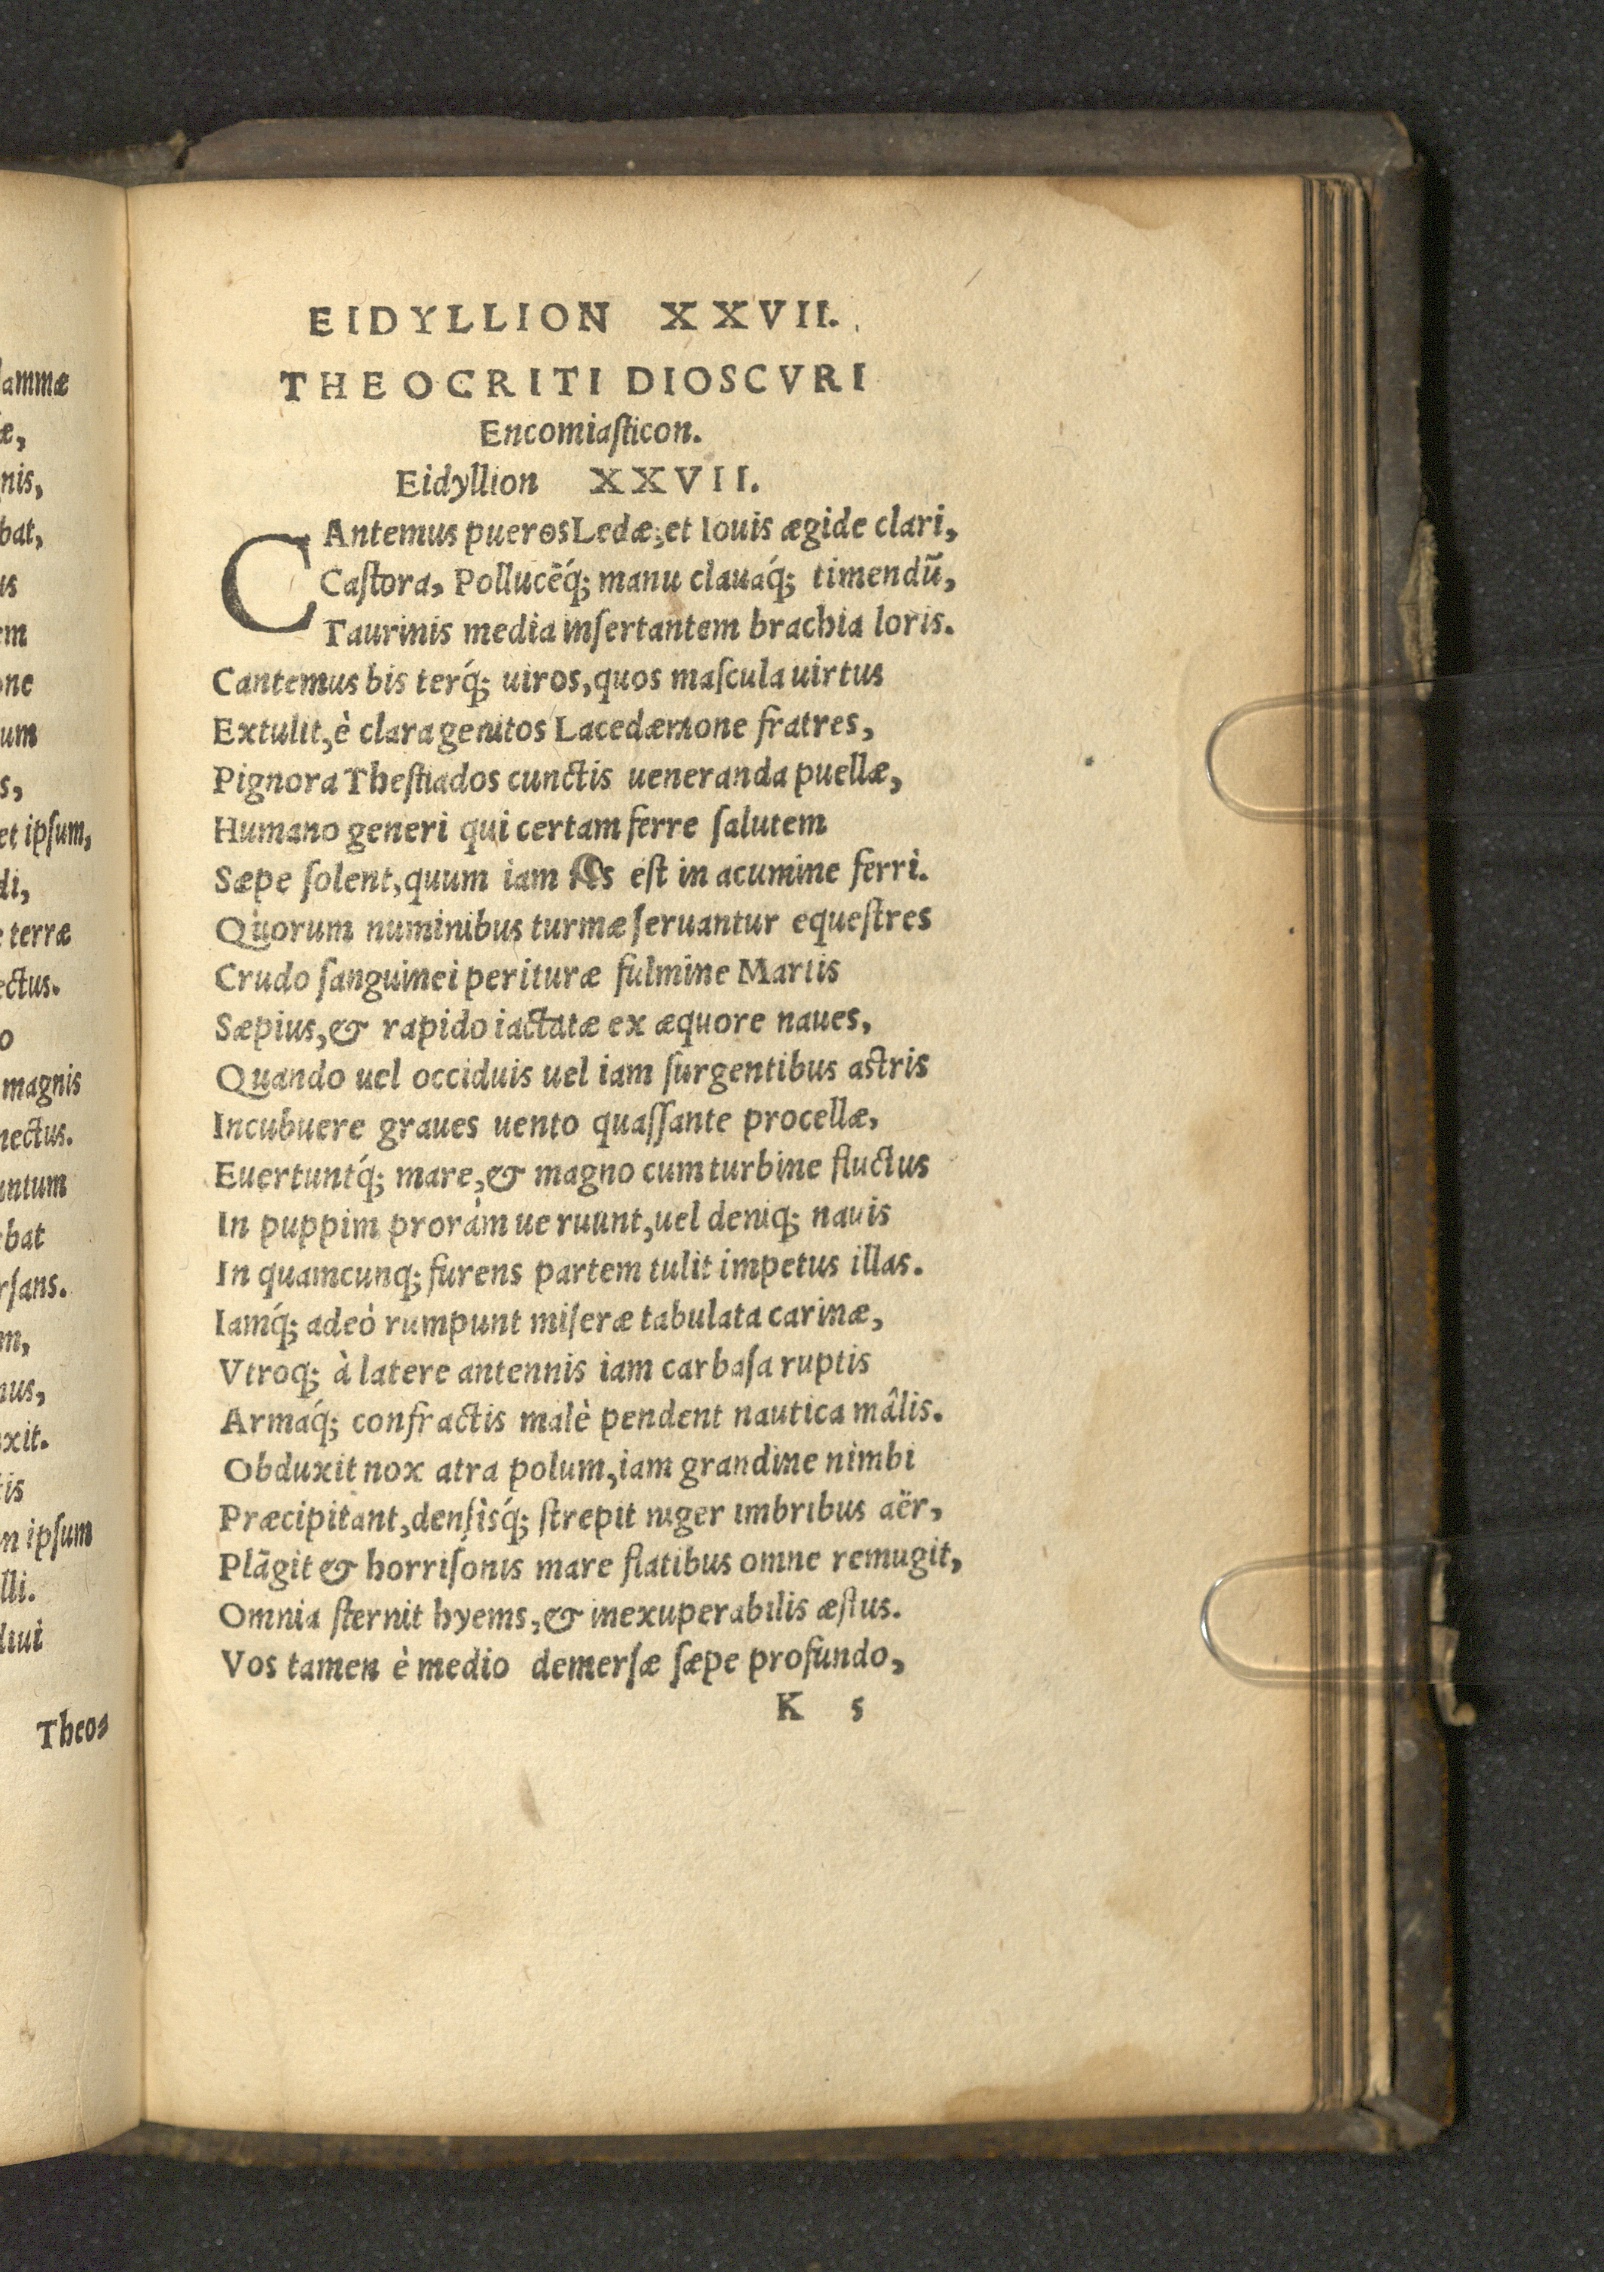 EIDYLLION XXVII.
THEOCRITI DIOSCVRI
Encomiaſticon.
Eidyllion XXVII.
CAntemus pueros Ledæ, et Iouis ægide clari,
Caſtora, Pollucḗq; manu clauáq; timendū,
Taurinis media inſertantem brachia loris.
Cantemus bis terq́; uiros, quos maſcula uirtus
Extulit, è clara genitos Lacedæmone fratres,
Pignora Theſtiados cunctis ueneranda puellæ,
Humano generi qui certam ferre ſalutem
Sæpe ſolent, quum iam est in acumine ferri.
Quorum numinibus turmæ ſeruantur equeſtres
Crudo ſanguinei perituræ fulmine Martis
Sæpius, & rapido iactatæ ex æquore naues,
Quando uel occiduis uel iam ſurgentibus astris
Incubuere graues uento quaſſante procellæ,
Euertuntq́; mare, & magno cum turbine fluctus
In puppim proràm ue ruunt, uel deniq; nauis
In quamcunq; furens partem tulit impetus illas.
Iamq́; adeò rumpunt miſeræ tabulata carinæ,
Vtroq; à latere antennis iam carbaſa ruptis
Armaq́; confractis malè pendent nautica mâlis.
Obduxit nox atra polum, iam grandine nimbi
Præcipitant, denſisq́; ſtrepit niger imbribus aër,
Plāgit & horriſonis mare flatibus omne remugit,
Omnia ſternit hyems, & inexuperabilis æſtus.
Vos tamen è medio demerſæ ſæpe profundo,
K 5
lammæ
æ,
nis,
bat,
us
em
one
um
s,
et ipſum,
di,
e terræ
ectus.
o
magnis
nectus.
untum
bat
rſans.
m,
nus,
xit.
tis
m ipſum
lli.
diui
Theo⸗